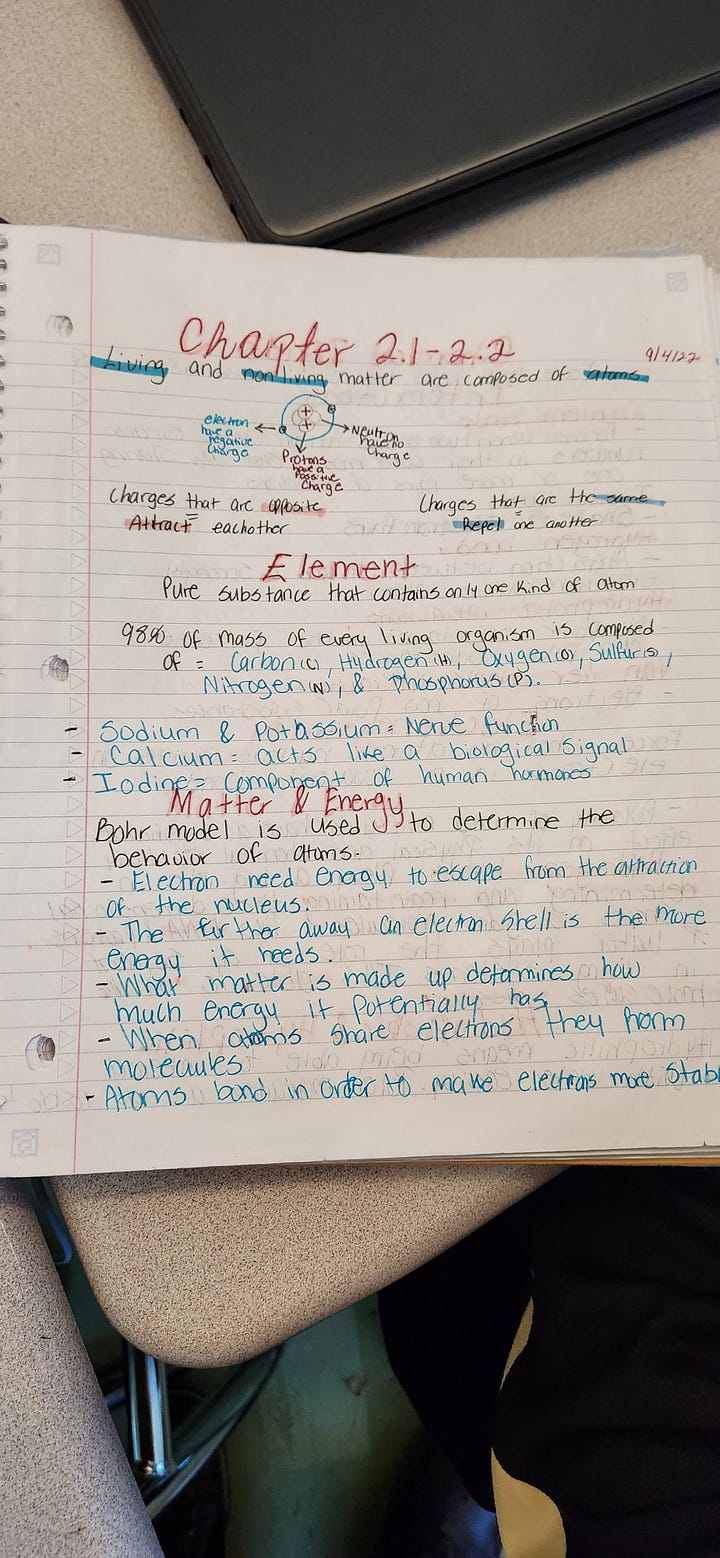 Chapter 2.1-2.2
9/4/22
Living and non living matter are composed of atoms
electron
have a
negative
Charge
+
+
Neutron
have no
Charge
Protons
have a
Positive
Charge
Charges that are opposite
Attract eachother
Charges that are the same
Repel one another
Element
Pure substance that contains only one kind of atom
98% of mass of every living organism is composed
of = Carbon (C), Hydrogen (H), Oxygen (O), Sulfur (S),
Nitrogen (N), & Phosphorus (P).
- Sodium & Potassium = Nerve function
- Calcium = acts like a biological signal
- Iodine = Component of human hormones
Matter & Energy
Bohr model is used to determine the
behavior of atoms.
- Electron need energy to escape from the attraction
of the nucleus.
- The further away an electron shell is the more
energy it needs.
- What matter is made up determines how
much energy it potentially has
- When atoms share electrons they form
molecules
- Atoms bond in order to make electrons more Stabl